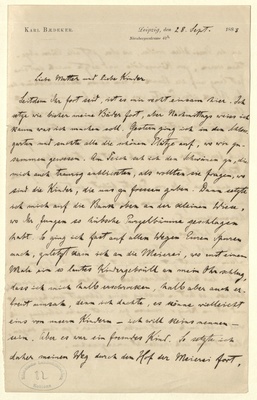 KARL BAEDEKER.
Leipzig, den 28. Sept. 188
Nürnbergerstrasse
Liebe Mutter und liebe Kinder
Seitdem Ihr fort seid, ist es mir recht einsam hier. Ich
setze wie bisher meine Bäder fort, aber Nachmittags weiss ich
kaum was ich machen soll. Gestern ging ich in den
garten und suchte alle die schönen Plätze auf, wo wir zu-
sammen gewesen. Am Teich sah ich den Schwänen zu, die
mich auch traurig anblickten, als wollten sie fragen, wo
sind die Kinder, die uns zu fressen gaben. Dann setzte
ich mich auf die Bank oben an der kleinen Wiese,
wo Ihr Jungen so hübsche Purzelbäume geschlagen
habt. So ging ich fast auf allen Wegen Euren Spuren
nach, zuletzt dann ich an die Meierei, wo mit einem
Male ein so lautes Kindergebrüll an mein Ohr schlug,
dass ich mich halb erschrocken, halb aber auch er-
freut umsah, denn ich dachte, es könne vielleicht
eins von unsern Kindern — ich will keins nennen —
sein. Aber es war ein fremdes Kind. So setzte ich
daher meinen Weg durch den Hof der Meierei fort,